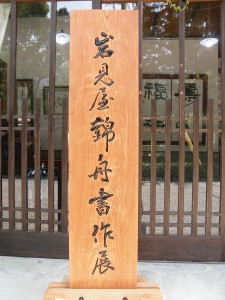 岩見屋錦舟書作展
福寿